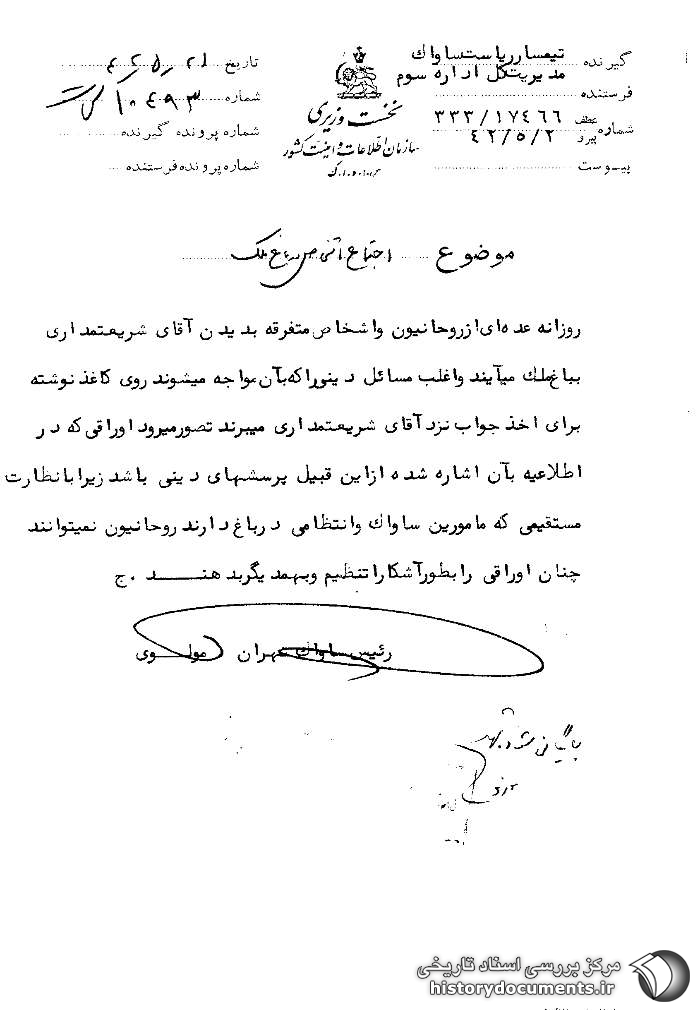 گیرنده تیمسار ریاست ساواک
مدیریت کل اداره سوم
فرستنده
شماره عطف ۳۳۳/۱۷٤٦٦
پیرو ٤۲/٥/۲
پیوست
نخست وزیری
سازمان اطلاعات و امنیت کشور
تاریخ
شماره ۱۰٤۹۳
شماره پرونده گیرنده
شماره پرونده فرستنده
موضوع اجتماع اشخاص در باغ ملک
روزانه عده‌ای از روحانیون واشخاص متفرقه بدیدن آقای شریعتمداری
بباغ ملك میآیند واغلب مسائل دینی را که بآن مواجه میشوند روی کاغذ نوشته
برای اخذ جواب نزد آقای شریعتمداری میبرند تصور میرود اوراقی که در
اطلاعیه بآن اشاره شده از این قبیل پرسشهای دینی باشد زیرا با نظارت
مستقیمی که مامورین ساواك وانتظامی در باغ دارند روحانیون نمیتوانند
چنان اوراقی را بطور آشکارا تنظیم وبهمدیگر بدهند . ج
رئیس ساواك تهران مولوی
بایگانی شود
مرکز بررسی اسناد تاریخی
historydocuments.ir